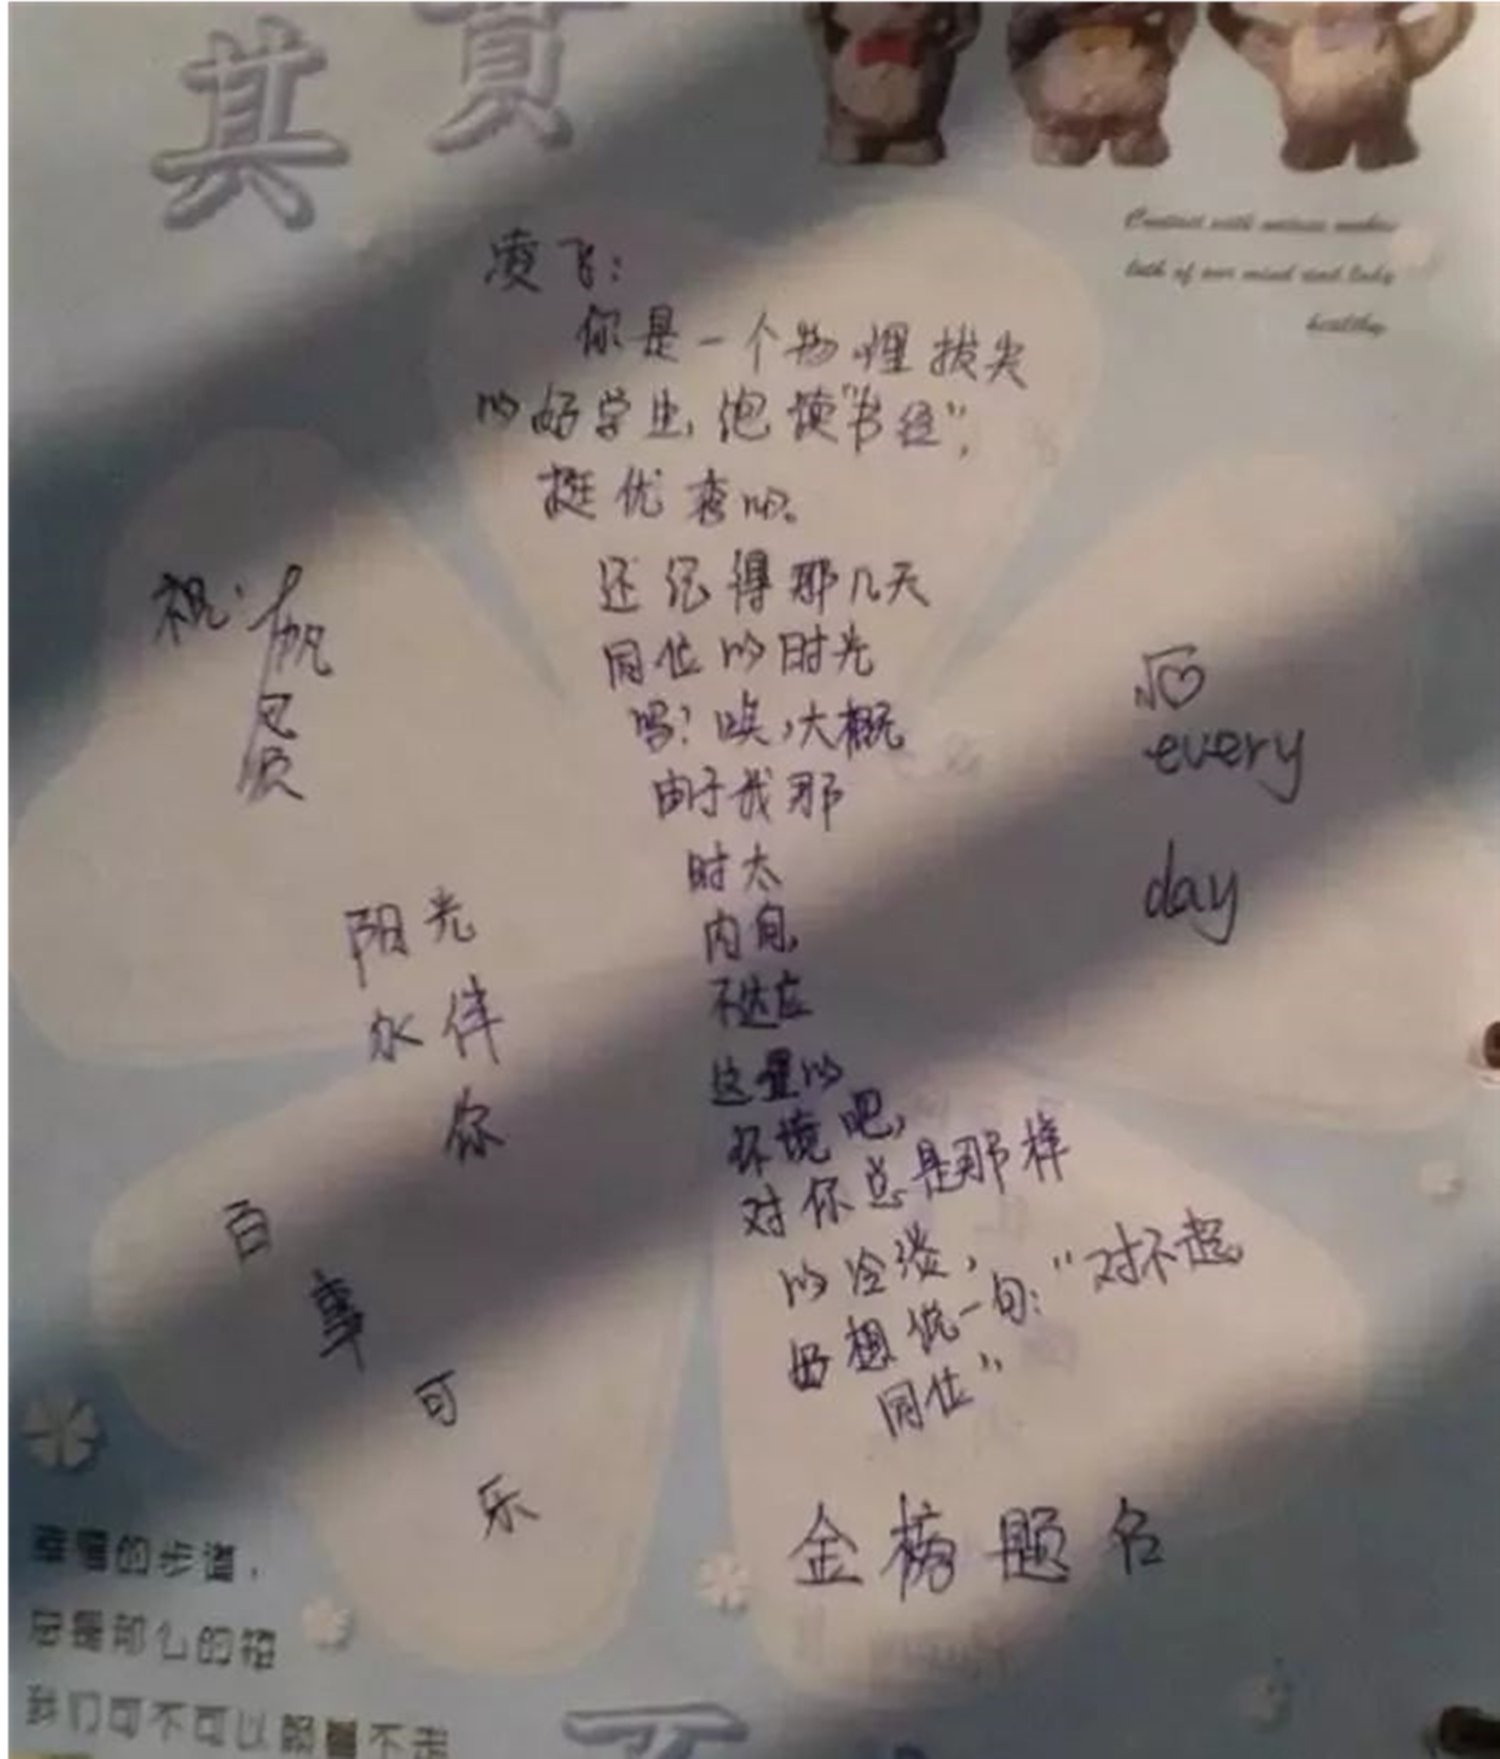 其實
Contact with nature makes
both of our mind and body
healthy
凌飞：
你是一个物理拔尖
的好学生，饱读“书经”，
挺优秀的。
还记得那几天
同位的时光
吗？唉，大概
由于我那
时太
内向，
不适应
这里的
环境吧，
对你总是那样
的冷淡，
好想说一句：“对不起，
同位”
祝：
一帆
风
顺
every
day
阳光
永伴
你
百
事
可
乐
金榜题名
幸福的步道，
总是那么的短
我们可不可以